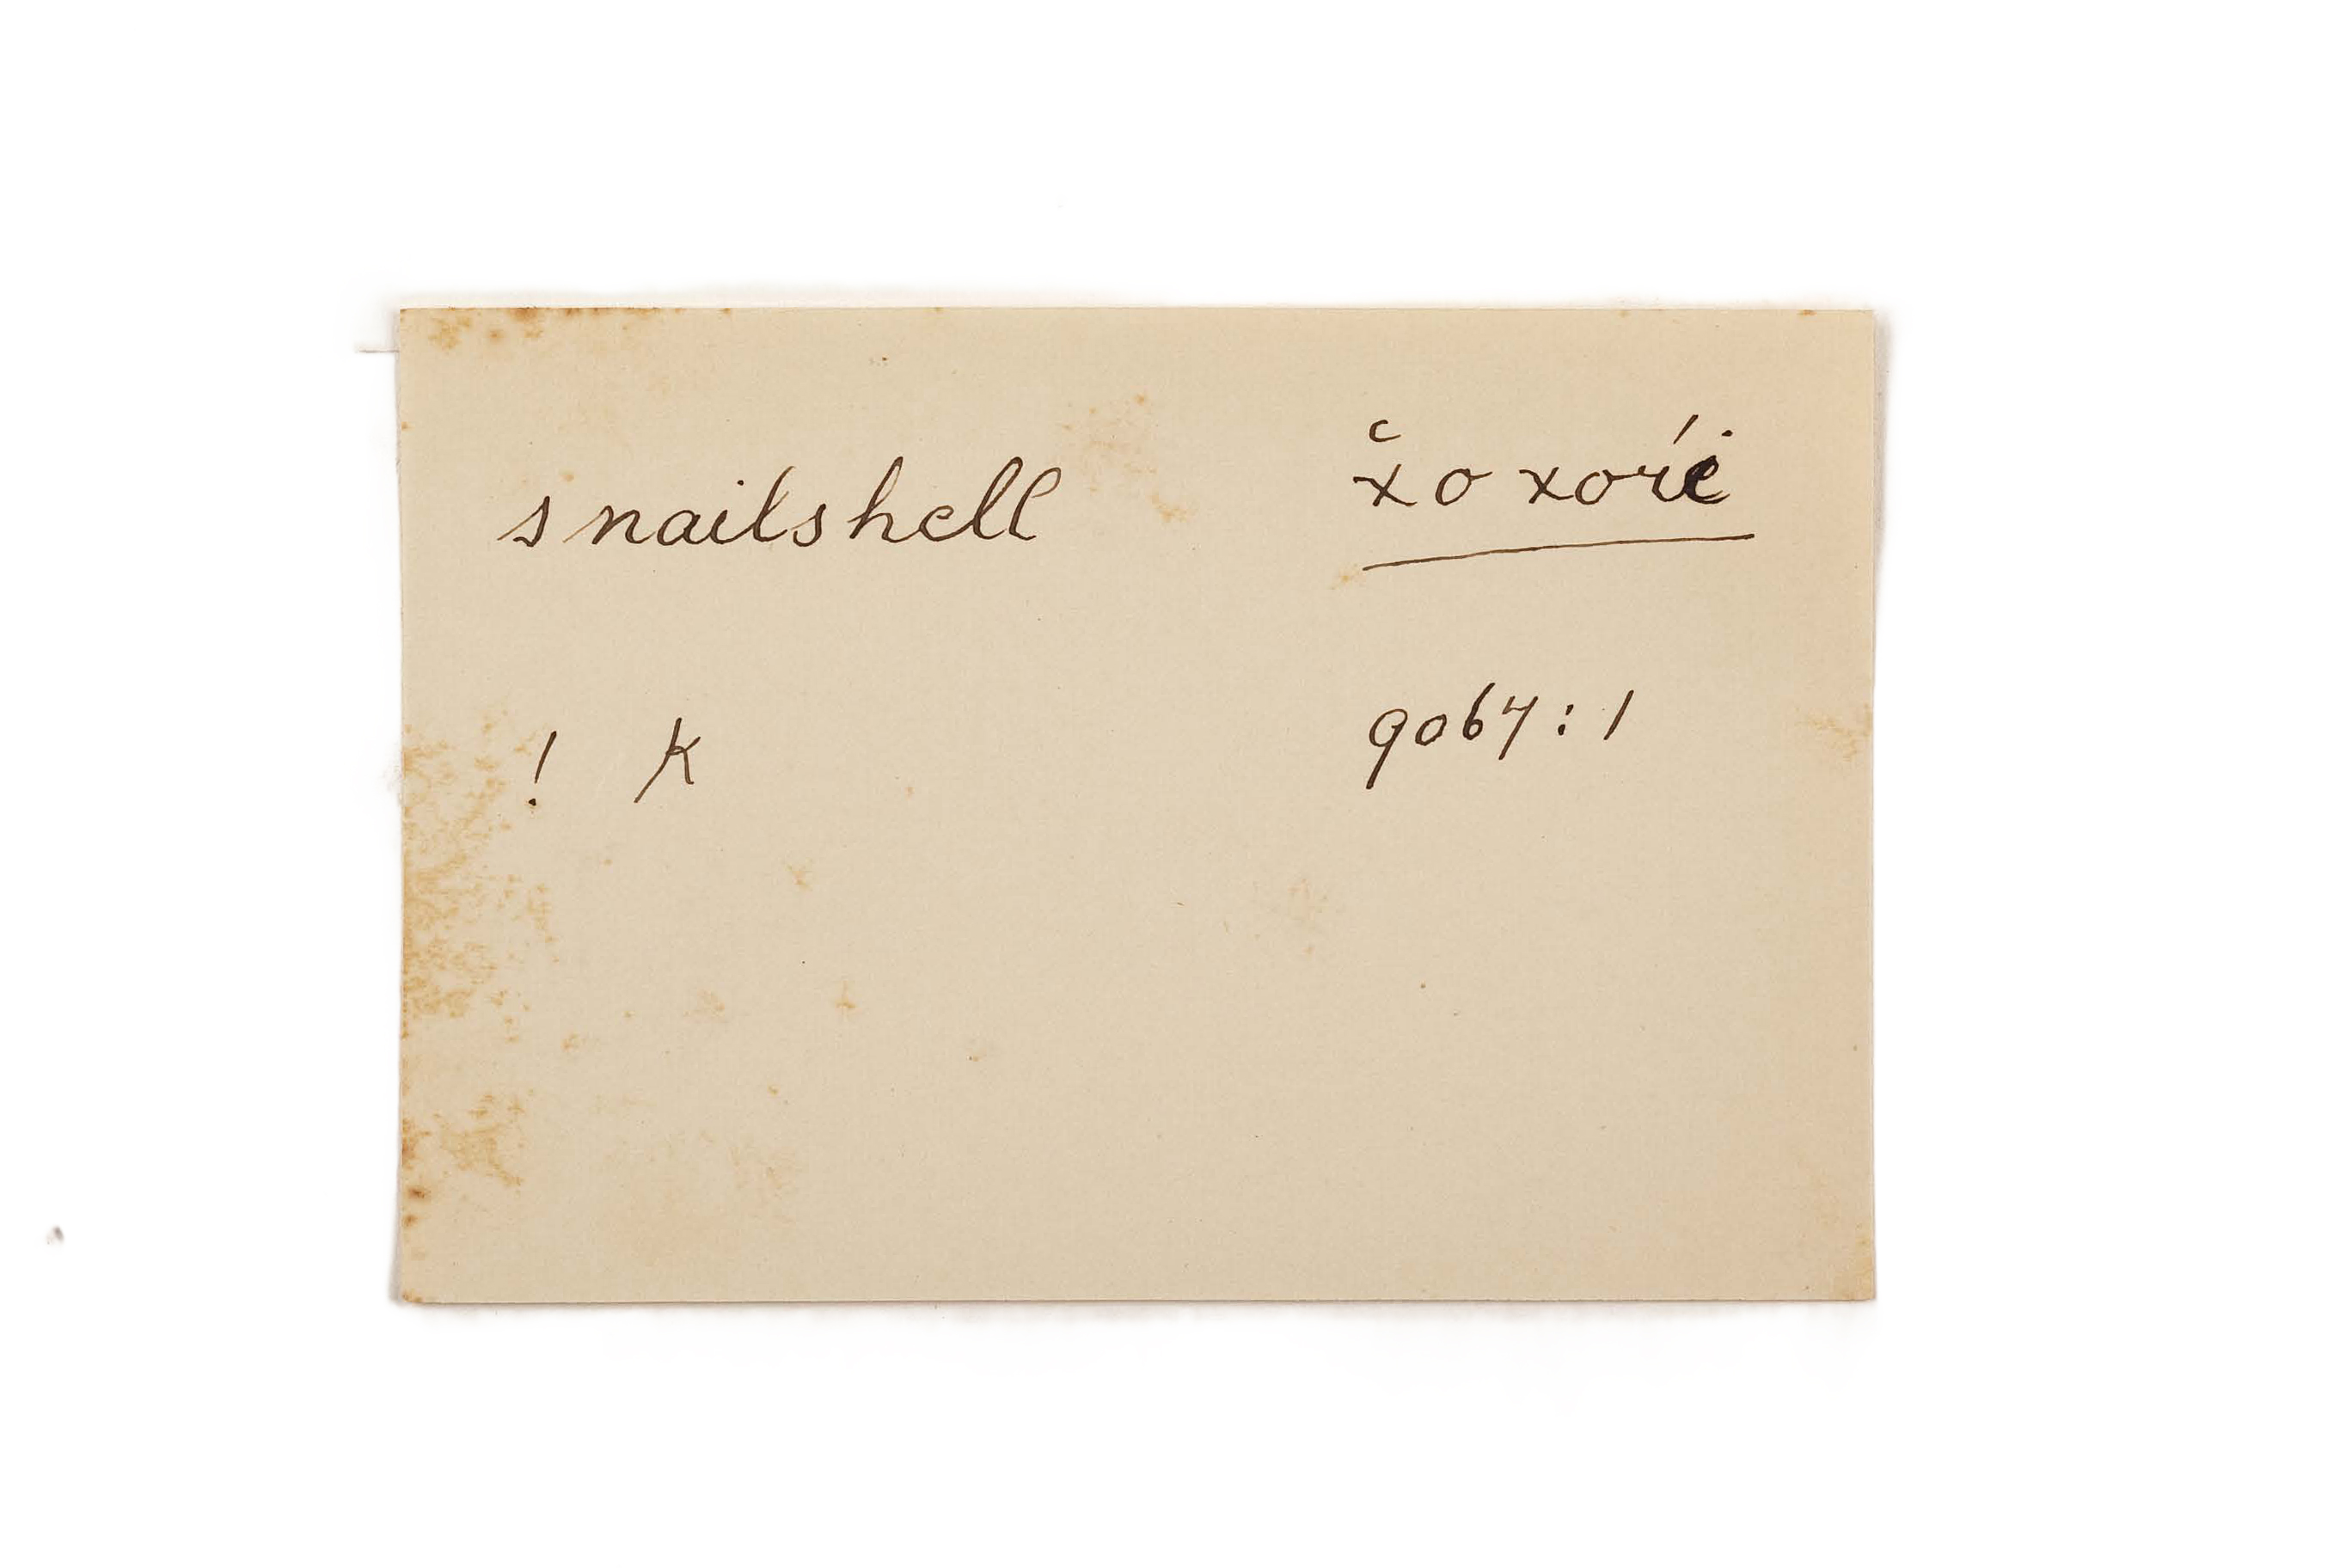 snailshell x͑oxoŕi
! K 9067:1